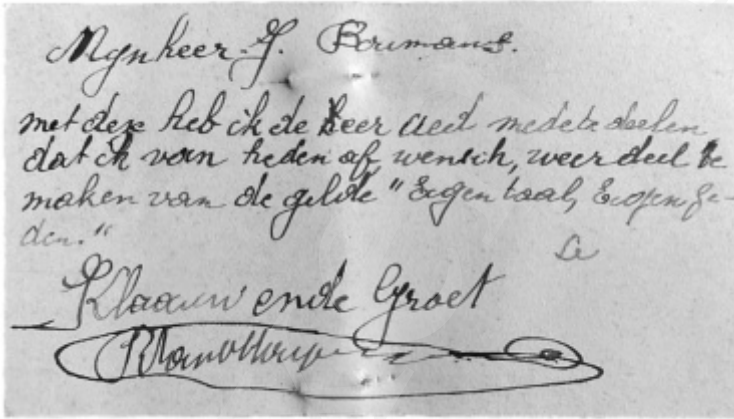 Mynheer J. Boumans.
met deze heb ik de heer Aed mede te deelen
dat ik van heden af, wensch, weer deel te
maken van de gilde "Eigen taal, Eigen ze-
den."
Klaauw ende Groet